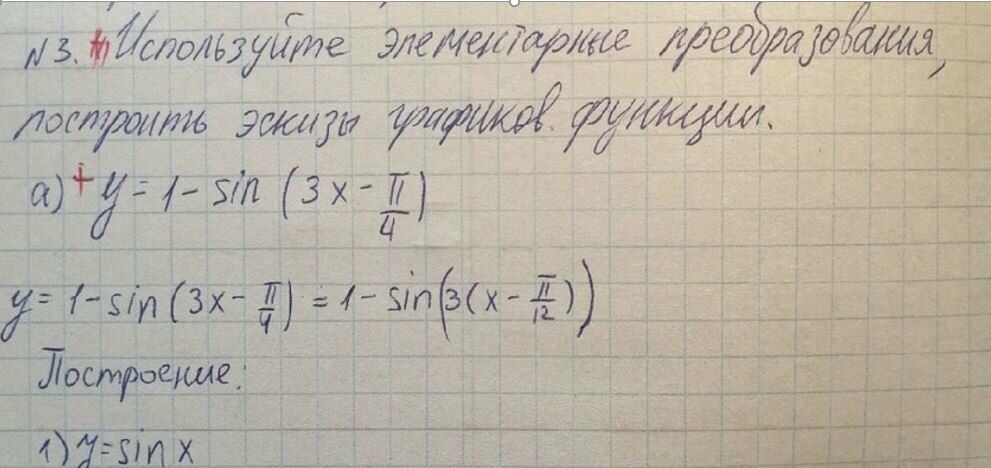 N3. Используйте элементарные преобразования,
построить эскизы графиков функции.
а) + y = 1 - sin (3x - π/4)
y = 1 - sin (3x - π/4) = 1 - sin(3(x - π/12))
Построение:
1) y = sin x